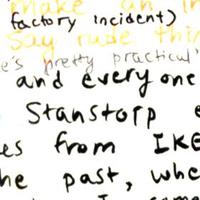 make an in
factory incident)
Say rude thin
e's pretty practical"
and everyone
Stanstorp e
es from IKE
he past, whe